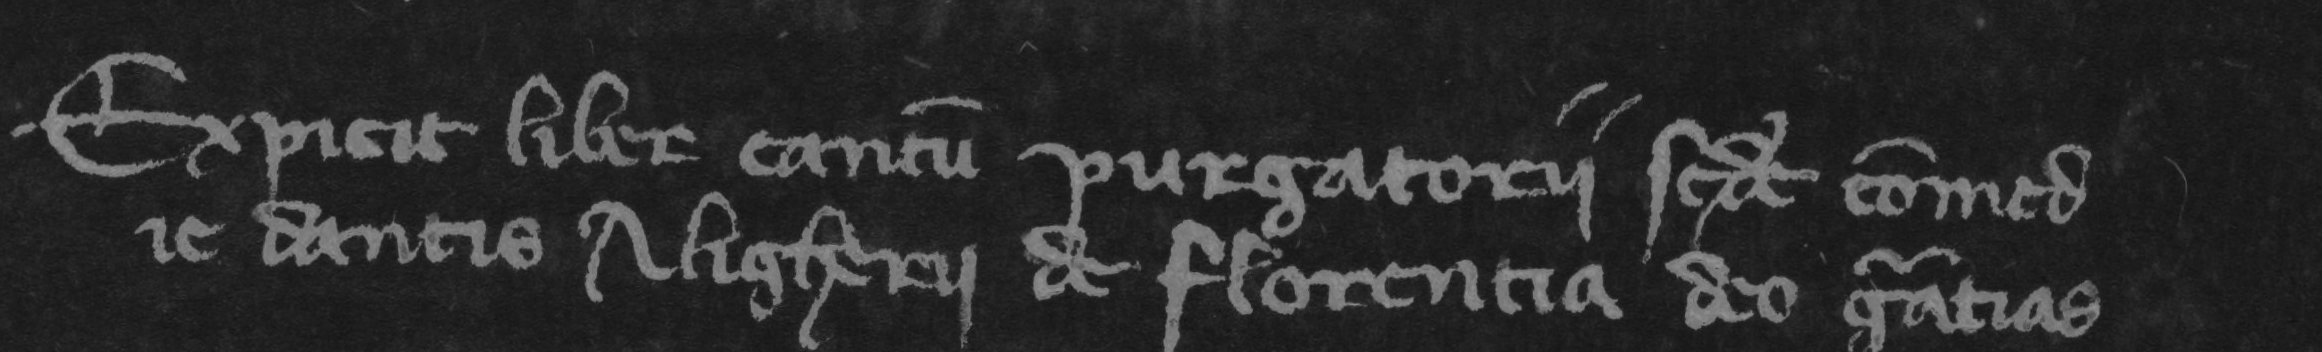 Expicit liber cantū purgatorij scde cōmed
ie dantis Aligherij de florentia deo gr̄atias